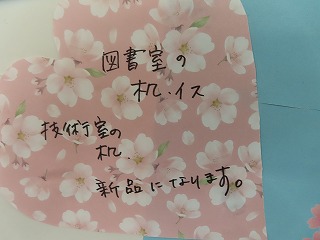 図書室の
机.イス
技術室の
机.
新品になります。